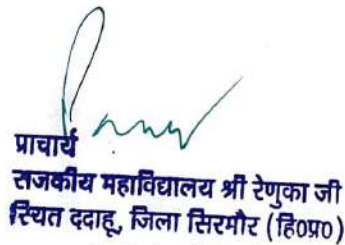 प्राचार्य
राजकीय महाविद्यालय श्री रेणुका जी
स्थित ददाहू, जिला सिरमौर (हि०प्र०)